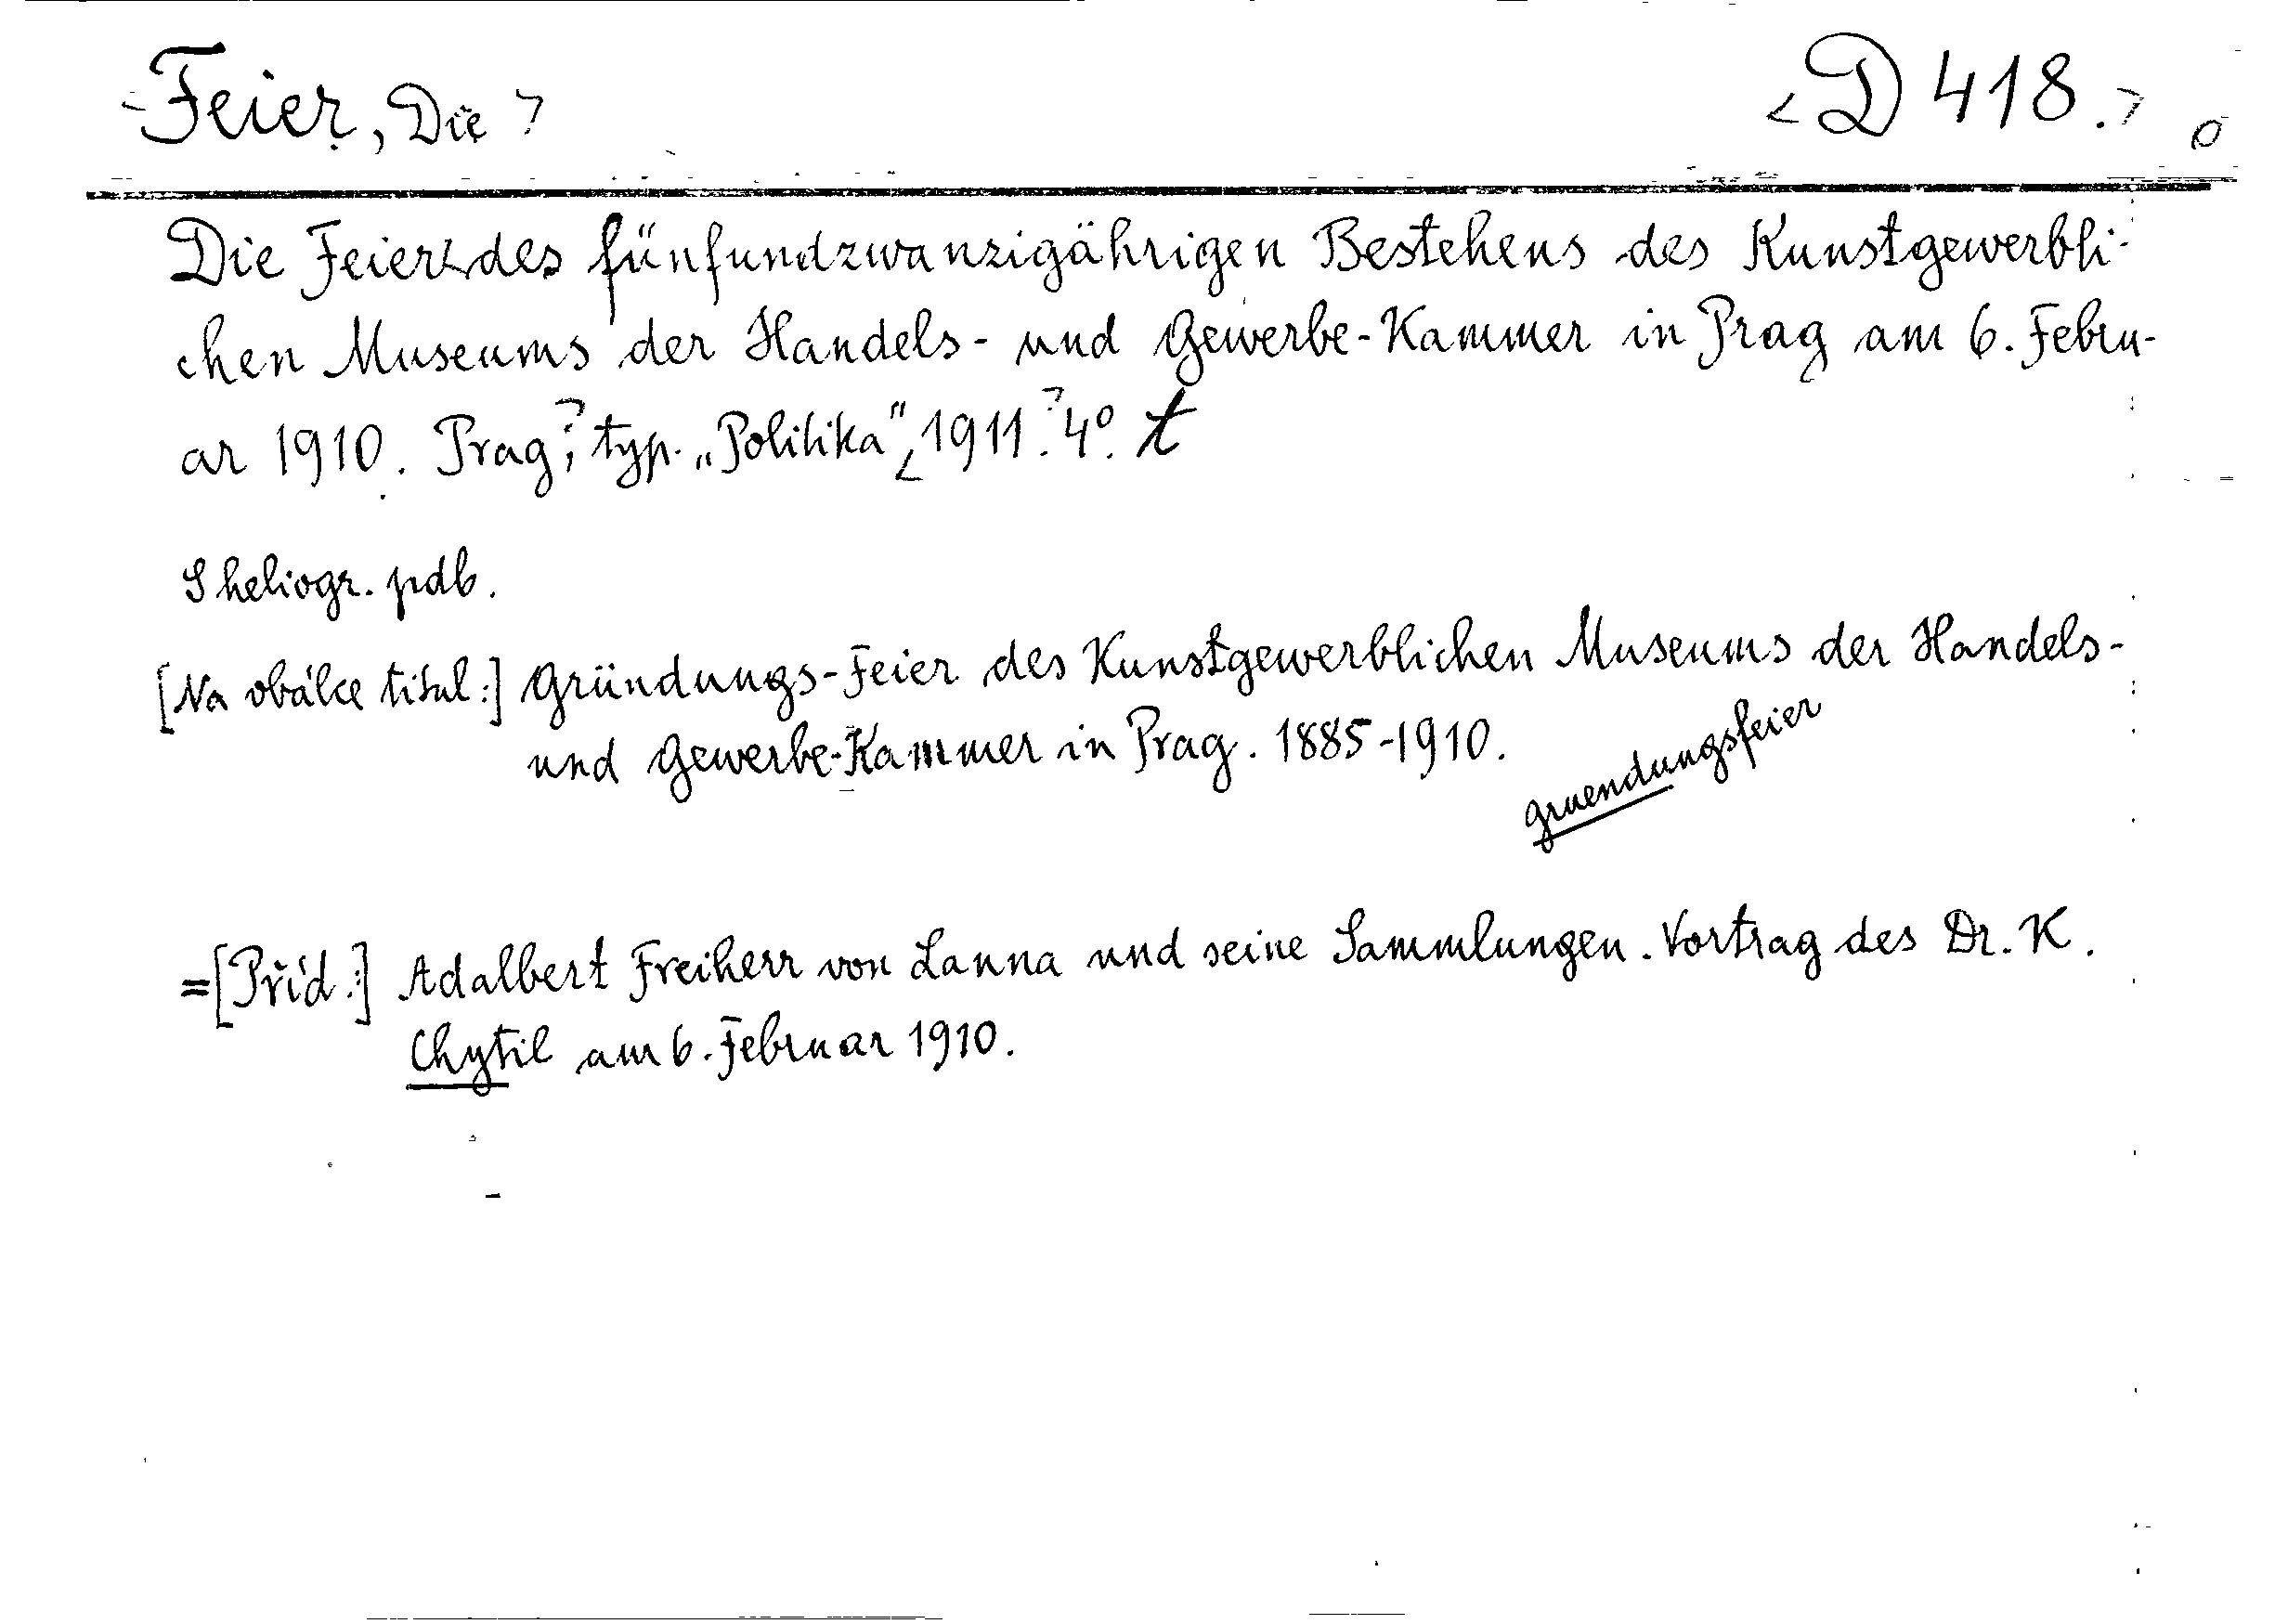 Feier, Die
D 418.
Die Feier des fünfundzwanzigährigen Bestehens des Kunstgewerbli-
chen Museums der Handels- und Gewerbe-Kammer in Prag am 6. Febru-
ar 1910. Prag, typ. „Politika“, 1911. 4°. t
S heliogr. pdb.
[Na obálce titul:] Gründungs-Feier des Kunstgewerblichen Museums der Handels-
und Gewerbe-Kammer in Prag. 1885-1910.
gruendungsfeier
=[Příd.:] Adalbert Freiherr von Lanna und seine Sammlungen. Vortrag des Dr. K.
Chytil am 6. Februar 1910.